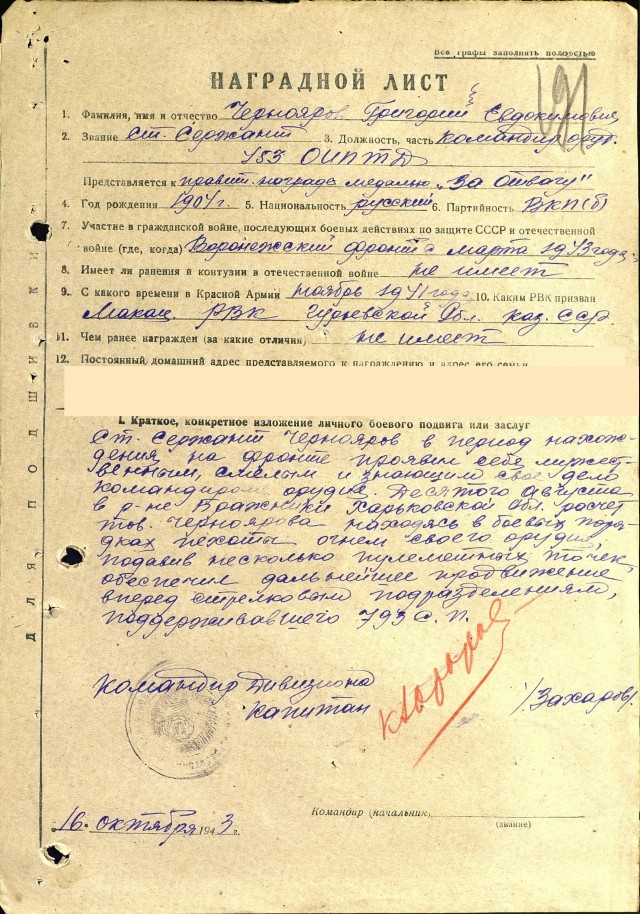 Все графы заполнять полностью
191
НАГРАДНОЙ ЛИСТ
1. Фамилия, имя и отчество Чернояров Григорий Евдокимович
2. Звание Ст. Сержант 3. Должность, часть командир оруд.
183 ОИПТД
Представляется к правит. награде медалью "За отвагу"
4. Год рождения 1904 г. 5. Национальность русский 6. Партийность ВКП(б)
7. Участие в гражданской войне, последующих боевых действиях по защите СССР и отечественной
войне (где, когда) Воронежский фронт с марта 1943 года
8. Имеет ли ранения и контузии в отечественной войне не имеет
9. С какого времени в Красной Армии ноябрь 1941 года 10. Каким РВК призван
Макат. РВК Гурьевской Обл. Каз. ССР.
11. Чем ранее награжден (за какие отличия) не имеет
12. Постоянный, домашний адрес представляемого к награждению и адрес его семьи
I. Краткое, конкретное изложение личного боевого подвига или заслуг
Ст. Сержант Чернояров в период нахож-
дения на фронте проявил себя мужест-
венным, смелым и знающим свое дело
командиром орудия. Десятого Августа
в р-не Бражники Харьковской Обл. расчет
тов. Черноярова находясь в боевых поря-
дках пехоты огнем своего орудия,
подавив несколько пулеметных точек,
обеспечил дальнейшее продвижение
вперед стрелковым подразделениям,
поддерживавшего 793 С.П.
Командир Дивизиона
Капитан /Захаров/
16. октября 1943 г.
Командир (начальник)
(звание)
ДЛЯ ПОДШИВКИ